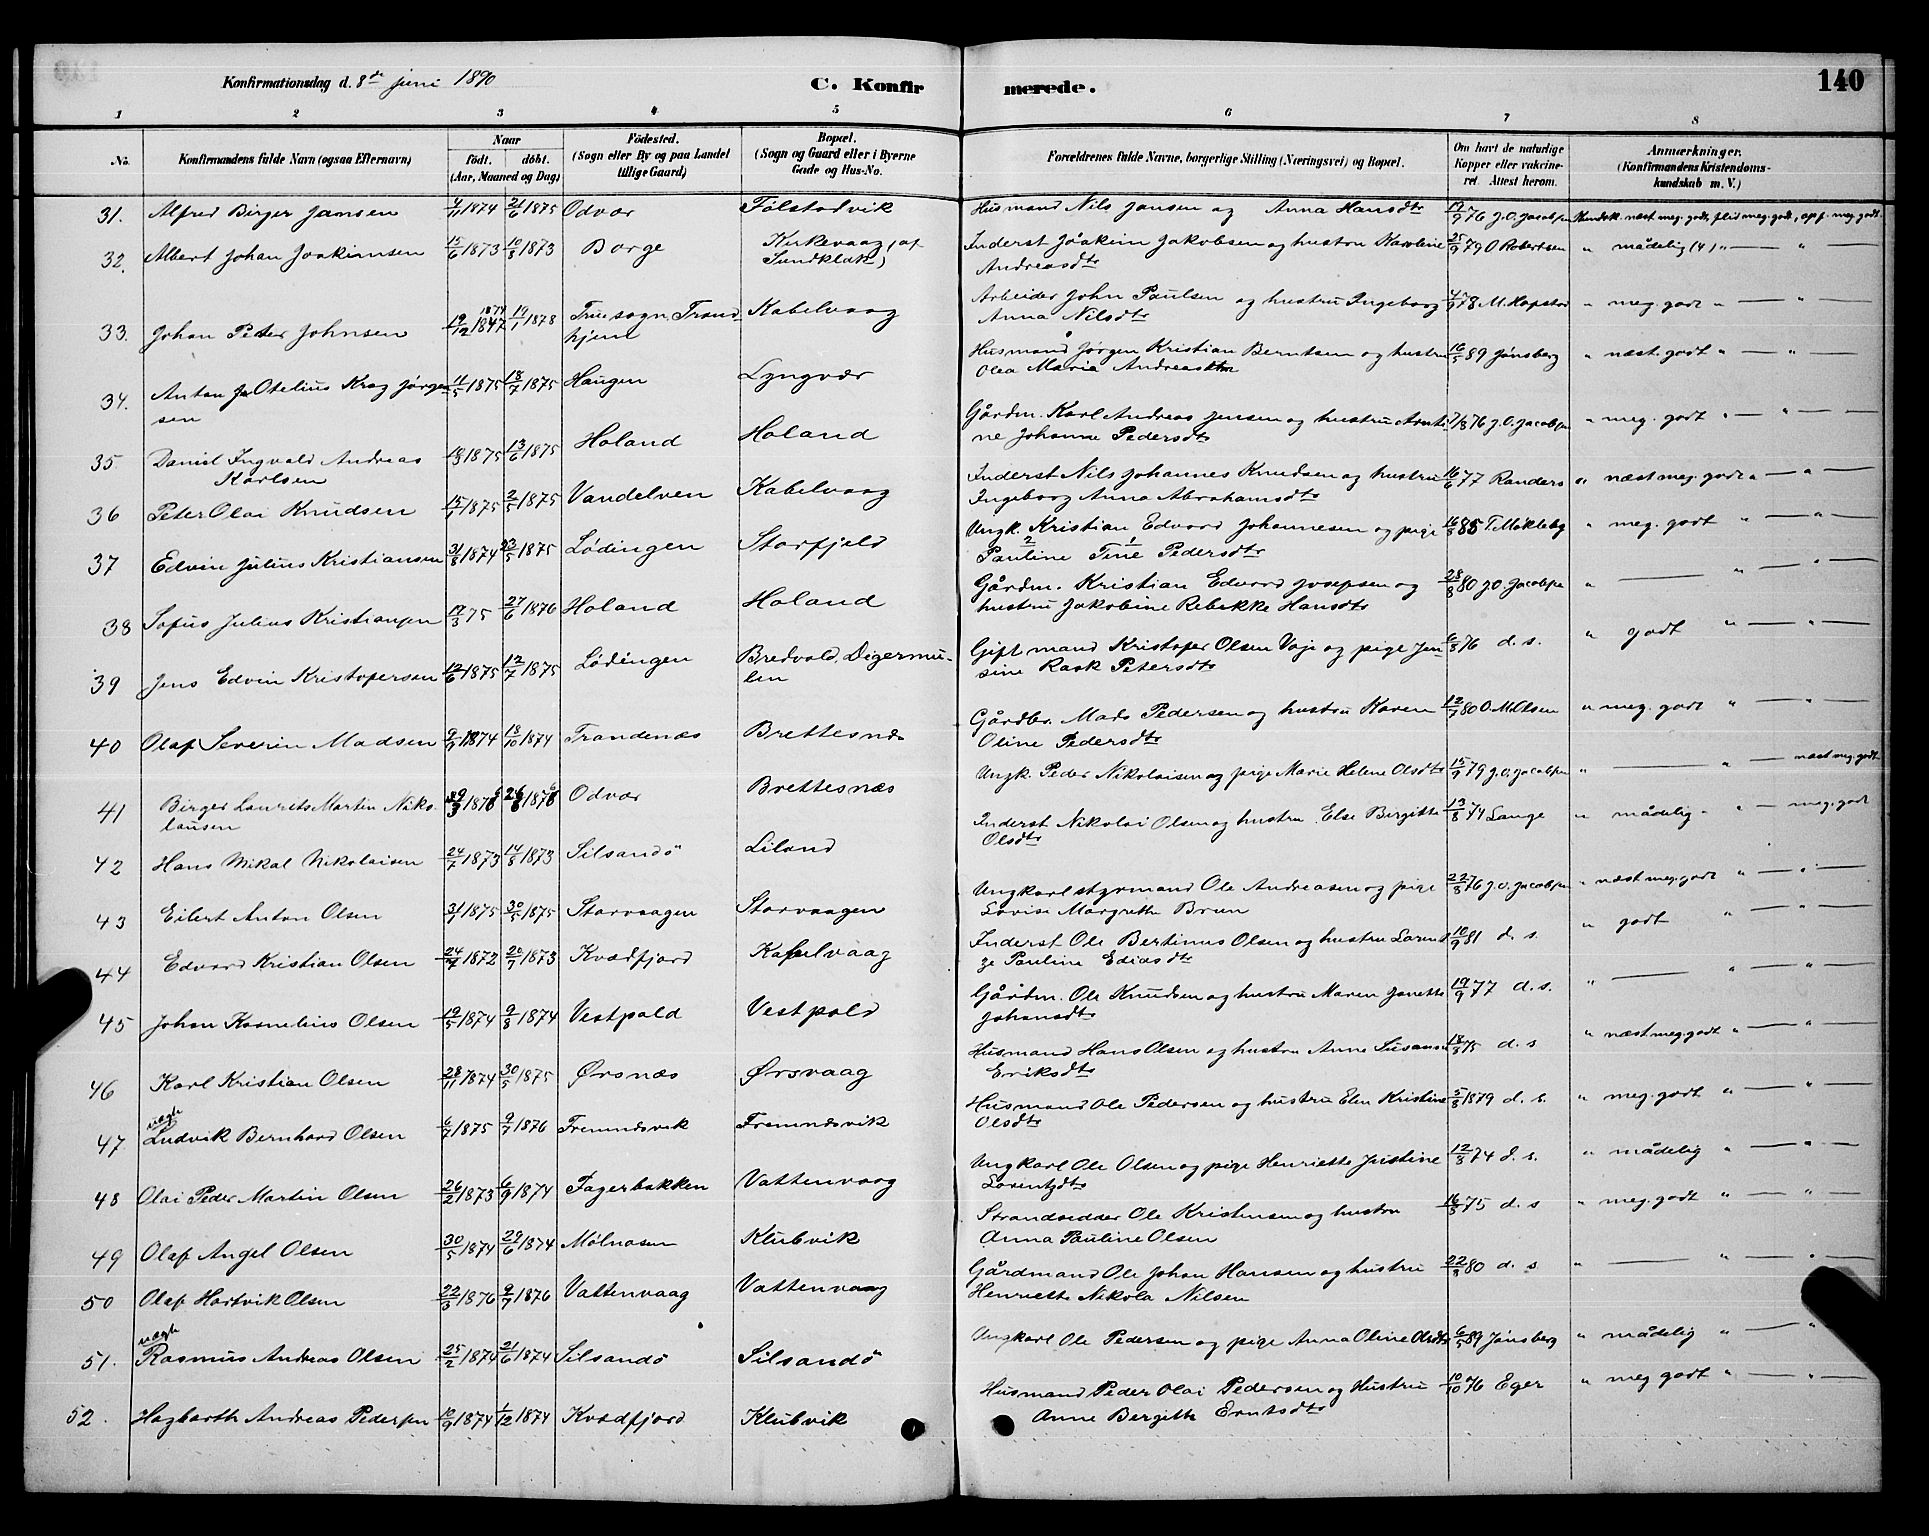 140
Konfirmationsdag d. 8de juni 1890
C. Konfirmerede.
1 2 3 4 5 6 7 8
No.
Konfirmandens fulde Navn (ogsaa Efternavn)
Naar
født. døbt.
(Aar, Maaned og Dag)
Fødested.
(Sogn eller By og paa Landet
tillige Gaard)
Bopæl.
(Sogn og Gaard eller i Byerne
Gade og Hus-No.
Forældrenes fulde Navne, borgerlige Stilling (Næringsvei) og Bopæl.
Om havt de naturlige
Kopper eller vakcine-
ret. Attest herom.
Anmærkninger.
(Konfirmandens Kristendoms-
kundskab m. V.)
31. Alfred Birger Jansen 4/11 1874 21/6 1875 Odvær Følstadvik Husmand Nils Jansen og Anna Hansdtr 19/9 76 J.O. Jacobsen Kundsk. næst meg. godt, flid meg. godt, opf. meg. godt.
32. Albert Johan Joakimsen 15/6 1873 10/8 1873 Borge Kirkevaag (af
Sundklak) Inderst Joakim Jakobsen og hustru Karoline
Andreasdtr 25/9 79 O Robertsen " mådelig (4) " — " —
33. Johan Peter Johnsen 19/12 1847 1874 19/1 1878 sogn, Trond-
hjem Kabelvaag Arbeider John Paulsen og hustru Ingeborg
Anna Nilsdtr 4/9 78 M. Kopstad " meg. godt " — " —
34. Anton Otelius Krog Jørgen-
sen 11/5 1875 18/7 1875 Haugen Lyngvær Husmand Jørgen Kristian Berntsen og hustru
Olea Maria Andreasdtr 16/5 89 Jønsberg " næst. godt " — " —
35. Daniel Ingvald Andreas
Karlsen 1875 13/6 1875 Holand Holand Gårdm. Karl Andreas Jensen og hustru
ne Johanna Pedersdtr 7/8 76 J.O. Jacobsen " meg. godt " — " —
36 Peter Olai Knudsen 15/1 1875 2/5 1875 Vandelven Kabelvaag Inderst Nils Johannes Knudsen og hustru
Ingeborg Anna Abrahamsdtr 16/6 77 Randers " næst meg. godt " — " —
37 Edvin Julius Kristiansen 31/8 1874 23/5 1875 Lødingen Storfjeld Ungk. Kristian Edvard Johannesen og pige
Pauline Tine Pedersdtr 16/8 85 T. Møkleby " meg. godt " — " —
38 Sofus Julius Kristiansen 19/3 75 27/6 1876 Holand Holand Gårdm. Kristian Edvard Josefsen og
hustru Jakobine Rebekke Hansdtr 28/8 80 JO Jacobsen " — " — " —
39 Jens Edvin Kristofersen 12/6 1875 12/7 1875 Lødingen Bredvold, Digermu-
len Gift mand Kristofer Olsen Voje og pige Jen-
sine Rask Petersdtr 6/8 76 d. s. " godt " — " —
40 Olaf Severin Madsen 9/9 1874 18/10 1874 Trandenæs Brettesnæs Gårdbr. Mads Pedersen og hustru Karen
Oline Pedersdtr 12/7 80 O. M. Olsen " meg. godt " — " —
41 Birger Laurits Martin Niko-
laisen Odvær Brettesnæs Ungk. Peder Nikolaisen og pige Marie Helene Olsdtr 15/9 79 J.O. Jacobsen " — " — næst meg. godt
42 Hans Mikal Nikolaisen 24/7 1873 14/8 1873 Silsandø Liland Inderst Nikolai Olsen og hustru Else Birgitte
Olsdtr 13/8 74 Lange " mådelig " " — meg. godt
43 Eilert Anton Olsen 31/1 1875 30/5 1875 Storvaagen Storvaagen Ungkarl styrmand Ole Andreasen og pige
Lovise Margrethe Brun 22/8 76 J.O. Jacobsen " næst meg. godt " — " —
44 Edvard Kristian Olsen 24/7 1872 20/7 1873 Kvædfjord Kabelvaag Inderst Ole Bertinus Olsen og hustru
ze Pauline Ediasdtr 10/9 81 d. s. " godt " — " —
45 Johan Kornelius Olsen 19/5 1874 9/8 1874 Vestpold Vestpold Gårdm. Ole Knudsen og hustru Maren Janette
Johansdtr 19/9 77 d. s. " — " — " —
46 Karl Kristian Olsen 28/11 1874 30/5 1875 Ørsnæs Ørsvaag Husmand Hans Olsen og hustru Anne Susanna
Eriksdtr 18/8 75 d. s " næst meg. godt " — " —
47. uægte
Ludvik Bernhard Olsen 6/7 1875 9/7 1876 Fremnesvik Fremnesvik Husmand Ole Pedersen og hustru Elen Kristine
Olsdtr 5/8 1879 d. s. " meg. godt " — " —
48 Olai Peder Martin Olsen 26/2 1873 6/9 1874 Fagerbakken Vattenvaag Ungkarl Ole Olsen og pige Henriette Justine
Lorentzdtr 12/8 74 d. s. " mådelig " — " —
49 Olaf Angel Olsen 30/5 1874 29/6 1874 Mølnosen Klubvik Strandsidder Ole Kristensen og hustru
Anna Pauline Olsen 16/8 75 d. s " meg. godt " — " —
50 Olaf Hartvik Olsen 22/3 1876 9/7 1876 Vattenvaag Vattenvaag Gårdmand Ole Johan Hansen og hustru
Henriette Nikola Nilsen 22/8 80 d. s " — " — " —
51. uægte
Rasmus Andreas Olsen 25/2 1874 21/6 1874 Silsandø Silsandø Ungkarl Ole Pedersen og pige Anna Oline Olsdtr 6/5 89 Jønsberg " mådelig " — " —
52. Hagbarth Andreas Pedersen 10/9 1874 1/12 1874 Kvædfjord Klubvik Husmand Peder Olai Pedersen og Hustru
Anne Bergitte Erntsdtr 10/10 76 Eger " meg godt " — " —